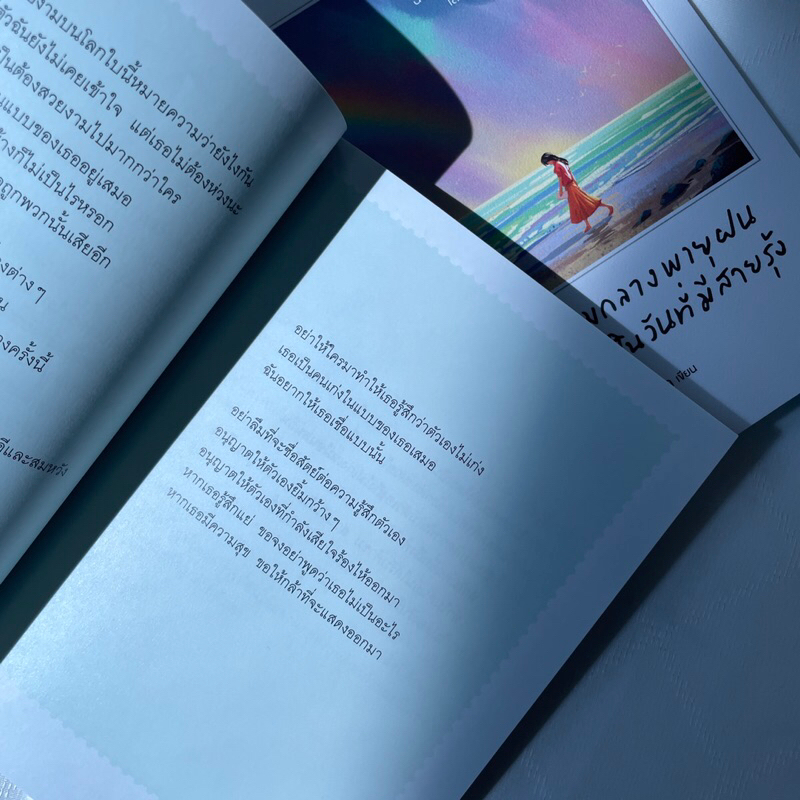 งามบนโลกใบนี้หมายความว่ายังไงกัน
ตัวฉันยังไม่เคยเข้าใจ แต่เธอไม่ต้องห่วงนะ
เป็นต้องสวยงามไปมากกว่าใคร
แบบของเธออยู่เสมอ
ก็ไม่เป็นไรหรอก
ถูกพวกนั้นเสียอีก
ต่าง ๆ
ครั้งนี้
และสมหวัง
อย่าให้ใครมาทำให้เธอรู้สึกว่าตัวเองไม่เก่ง
เธอเป็นคนเก่งในแบบของเธอเสมอ
ฉันอยากให้เธอเชื่อแบบนั้น
อย่าลืมที่จะซื่อสัตย์ต่อความรู้สึกตัวเอง
อนุญาตให้ตัวเองยิ้มกว้าง ๆ
อนุญาตให้ตัวเองที่กำลังเสียใจร้องไห้ออกมา
หากเธอรู้สึกแย่ ขอจงอย่าพูดว่าเธอไม่เป็นอะไร
หากเธอมีความสุข ขอให้กล้าที่จะแสดงออกมา
กลางพายุฝน
วันที่มีสายรุ้ง
เขียน